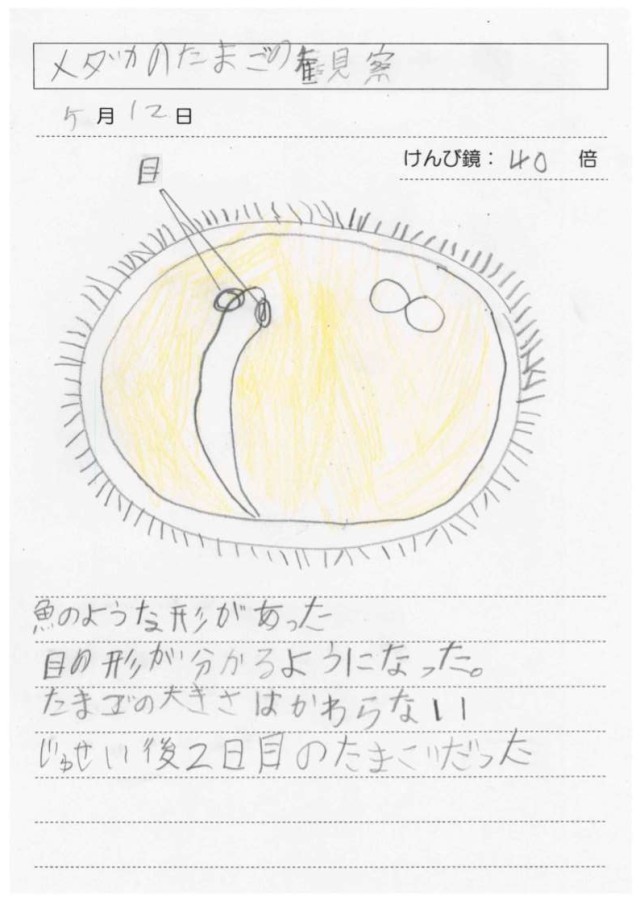 メダカのたまごの観察
5月12日
けんび鏡：40倍
目
魚のような形があった
目の形が分かるようになった。
たまごの大きさはかわらない
じゅせい後2日目のたまごだった